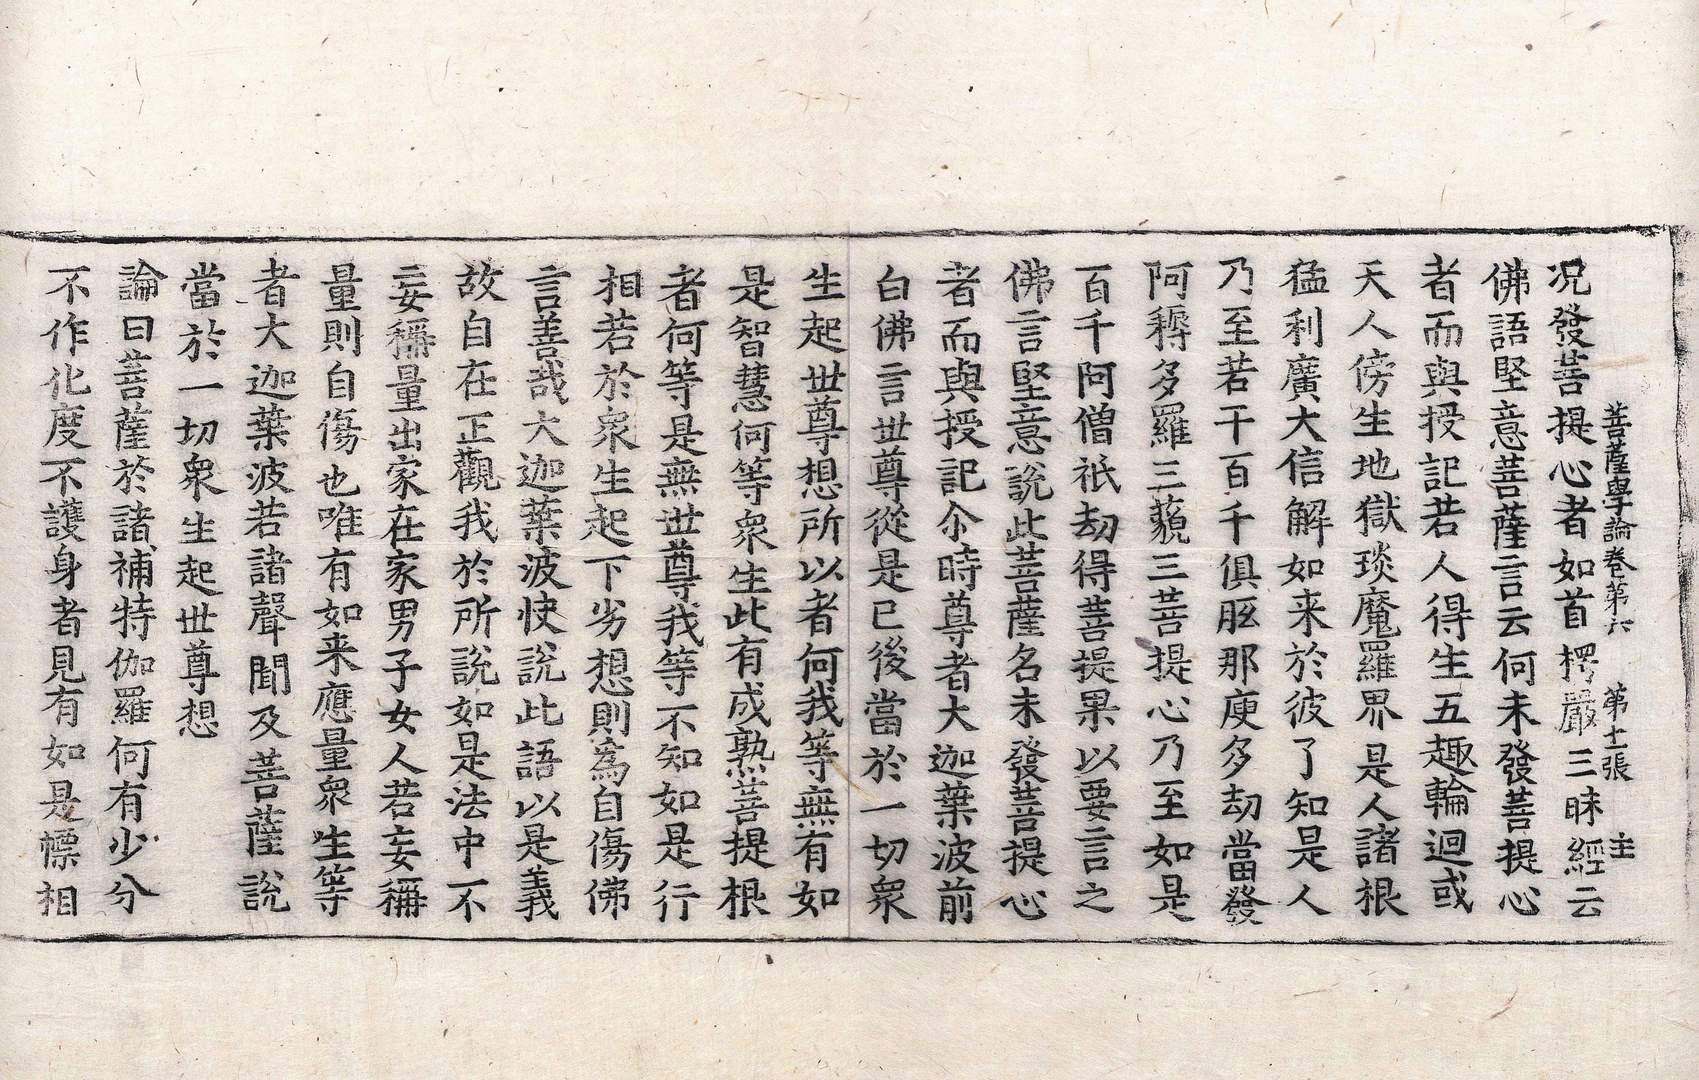 菩薩學論卷第六 第十一張 主
况發菩提心者如首楞嚴三昧經云
佛語堅意菩薩言云何未發菩提心
者而與授記若人得生五趣輪迴或
天人傍生地獄琰魔羅界是人諸根
猛利廣大信解如来於彼了知是人
乃至若干百千俱胝那庾多劫當發
阿耨多羅三藐三菩提心乃至如是
百千阿僧祇劫得菩提果以要言之
佛言堅意說此菩薩名未發菩提心
者而與授記尒時尊者大迦葉波前
白佛言世尊從是已後當於一切衆
生起世尊想所以者何我等無有如
是智慧何等衆生此有成熟菩提根
者何等是無世尊我等不知如是行
相若於衆生起下劣想則為自傷佛
言善哉大迦葉波快說此語以是義
故自在正觀我於所說如是法中不
妄稱量出家在家男子女人若妄稱
量則自傷也唯有如来應量衆生等
者大迦葉波若諸聲聞及菩薩說
當於一切衆生起世尊想
論曰菩薩於諸補特伽羅何有少分
不作化度不護身者見有如是幖相